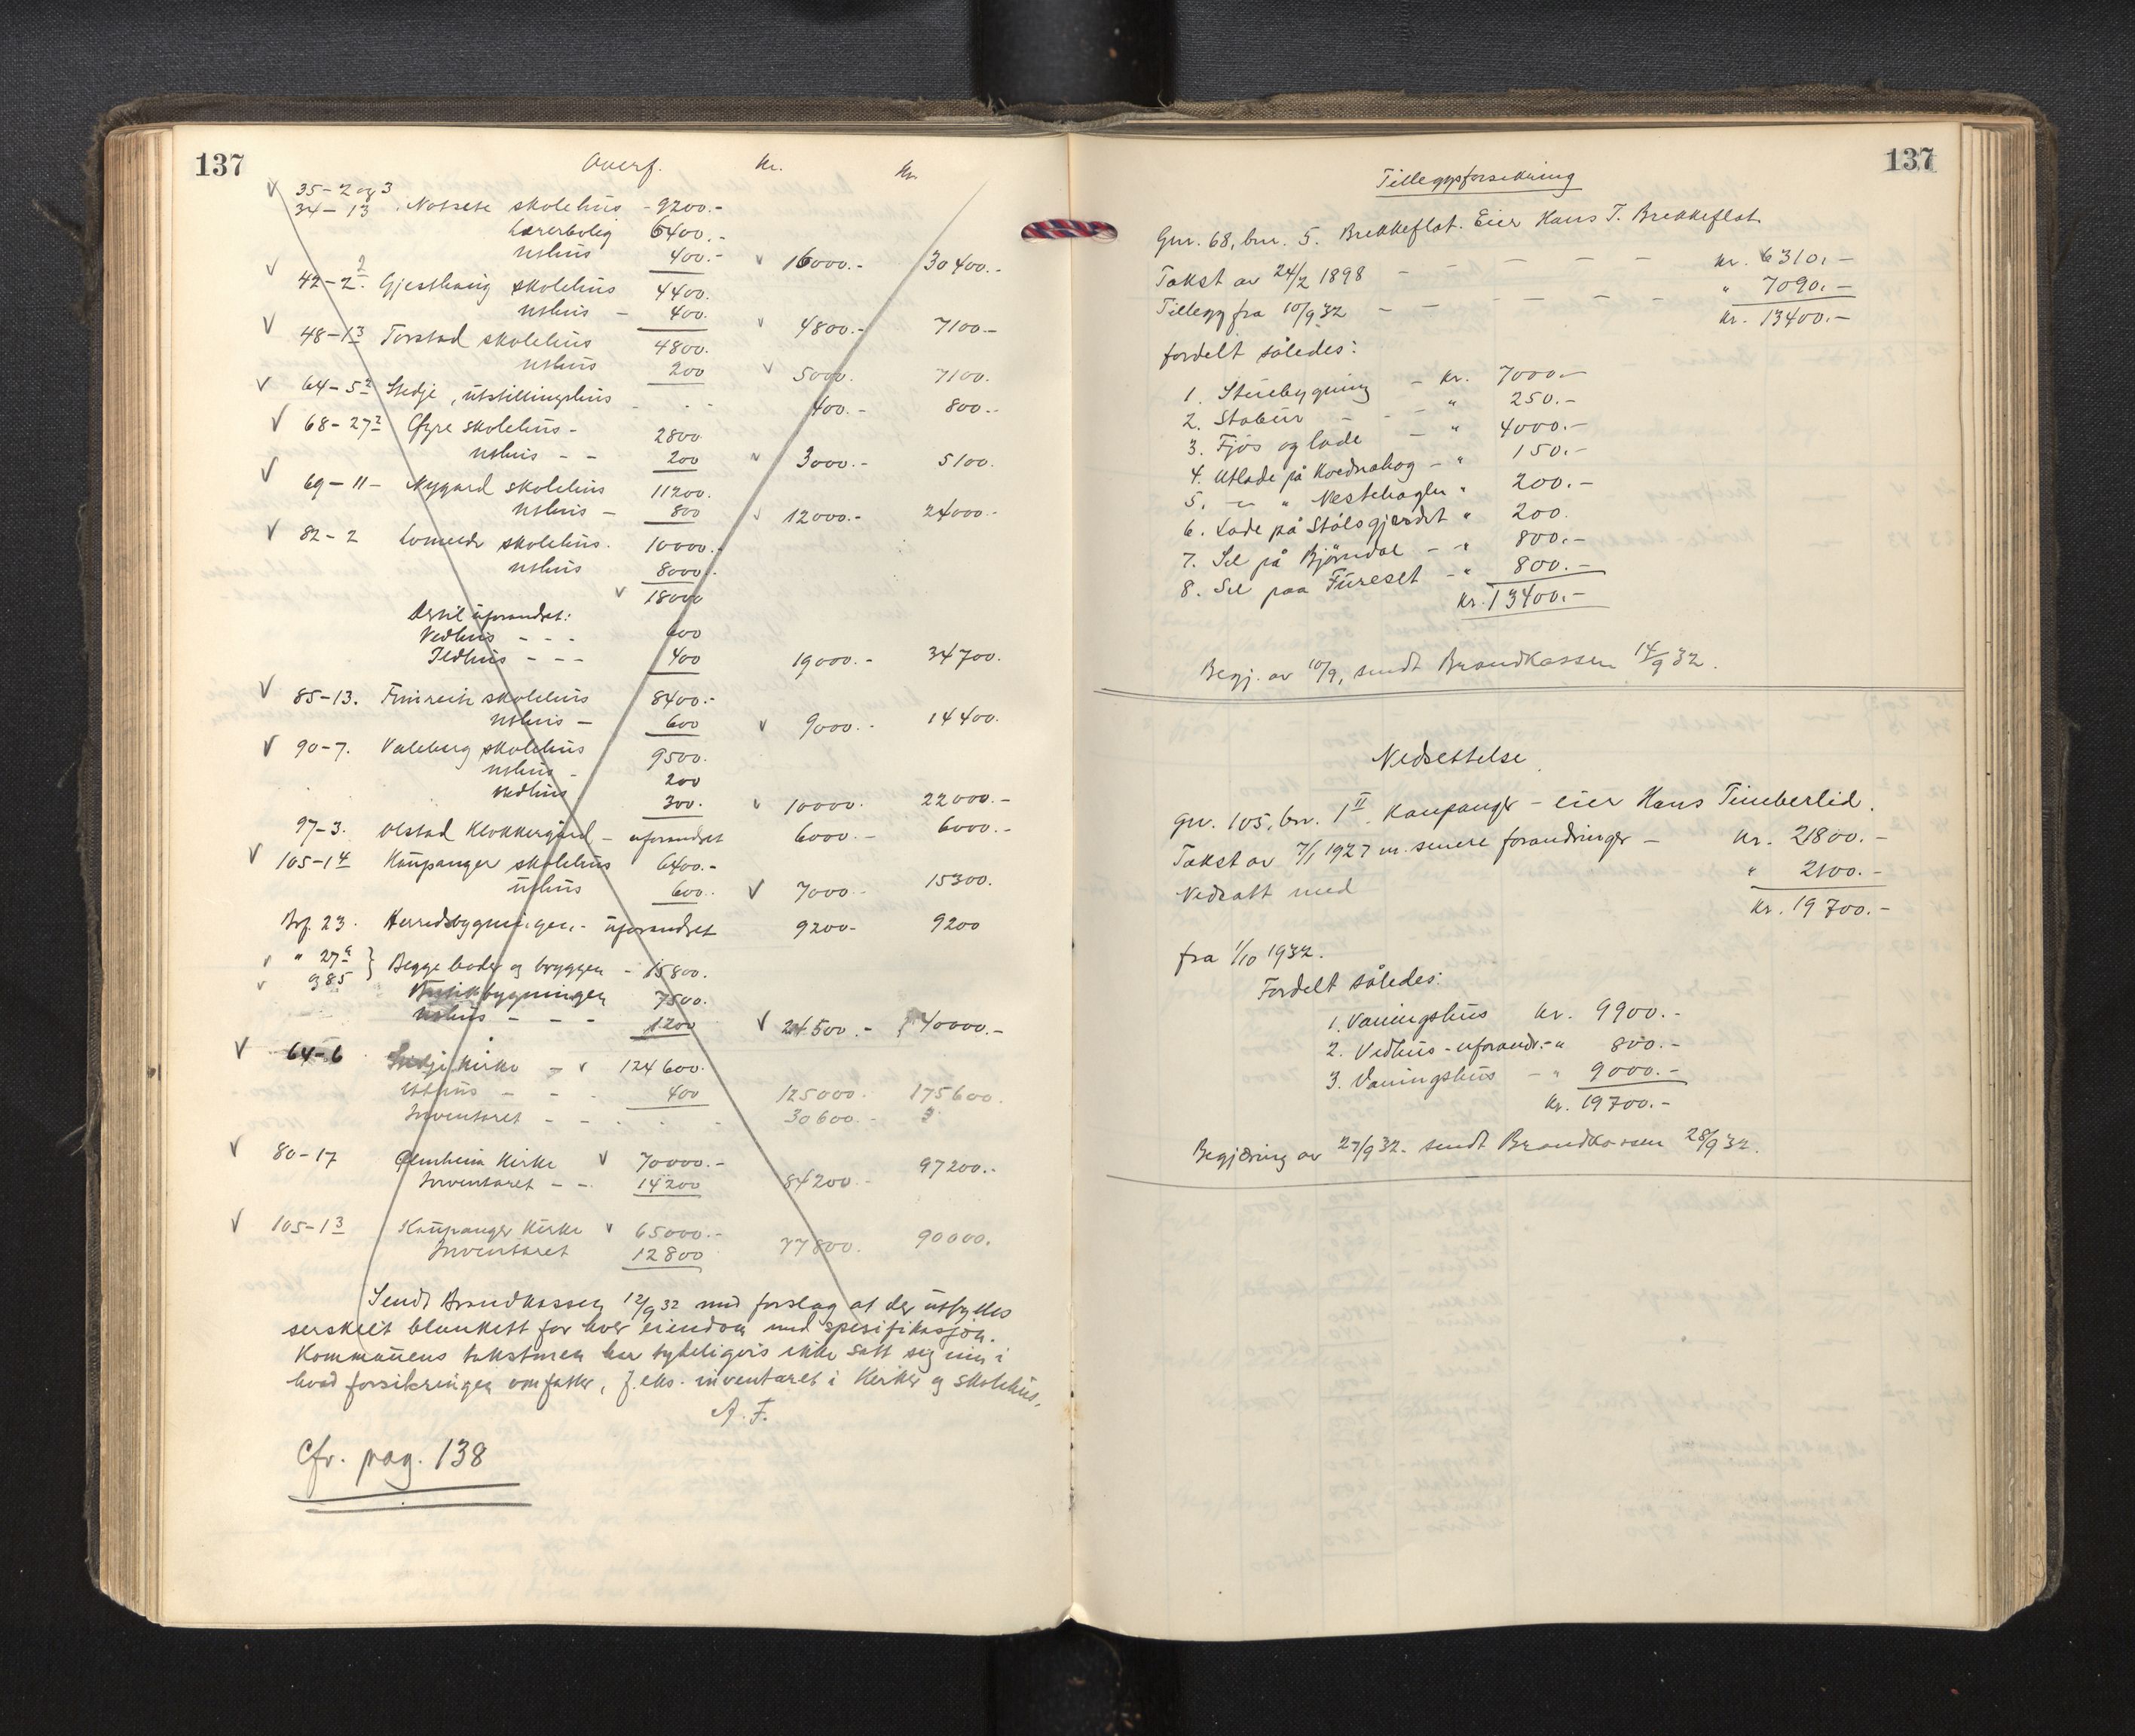 137
Overf. Kr. Kr.
35-2 og 3
34-13 Notsete skolehus - 9200.-
Lærerbolig 6400.-
uthus 400.- 16000.- 30400.-
42-2 2 skolehus 4400.
uthus - 400. 4800.- 7100.-
48-13 Torstad skolehus 4800.
uthus 200 5000. 7100.
64-5² Stedje, utstillingshus - - - 400.- 800.-
68-27² Øyre skolehus - 2800
uthus - - 200 3000.- 5100.
69-11- Nygard skolehus 11200.
uthus - 800 12000.- 24000.-
82-2 skolehus. 10000.-
uthus 8000.-
18000
Dertil uforandret:
Vedhus - - - 600
Ildhus - - - 400 19000.- 34700.
85-13. Fimreite skolehus 8400.-
uthus - 600 9000.- 14400.
90-7. Valeberg skolehus 9500.
uthus - 200
vedhus 300. 10000. 22000.-
97-3. Olstad Klokkergård - uforandret 6000.- 6000.-
105-14 Kaupanger skolehus 6400.-
uthus 600. 7000.- 15300.
Brf. 23. Herredsbygningen - uforandret 9200- 9200
" 27ª } Begge boder og bryggen - 15800.
985 7500.
uthus - - - 1200 24500.- 40000.-
64-6 Stedje Kirke - 124600.
uthus - - - 400 125000. 175600.
Inventaret - - . . . 30600.-
80-17 Kirke 70000.- 97200.-
Inventaret - - 14200 84200.-
105-13 Kaupanger Kirke 65000.-
Inventaret 12800 77800. 90000.
Sendt Brandkassen 12/9 32 med forslag at der utfylles
serskilt blankett for hver eiendom med spesifikasjon.
Kommunens takstmen har tydeligvis ikke satt sig inn i
hvad forsikringen omfatter, f.eks. inventaret i Kirker og skolehus.
A. F.
Cfr. pag. 138
137
Tilleggsforsikring
Gnr. 68, bnr. 5. Brekkeflat. Eier Hans T. Brekkeflat
Takst av 24/2 1898 - - - - - - kr. 6310.-
Tillegg fra 10/9 32 - - - - - - " 7090.-
kr. 13400.-
fordelt således:
1. Stuebygning - kr. 7000.-
2. Stabur - - - " 250.-
3. Fjøs og lade - " 4000.-
4. Utlade på - " 150.-
5. - " - " " 200.-
6. Lade på Stølsgjerdet " 200.
7. Sel på Bjørndal - - " 800.-
8. Sel paa Fureset - " 800.-
kr. 13400.-
Begj. av 10/9, sendt Brandkassen 14/9 32.
Nedsettelse
Gnr. 105, bnr. 1 II. Kaupanger - eier Hans Timberlid.
Takst av 7/1 1927 m. senere forandringer - kr. 21800.-
Nedsatt med " 2100.-
kr. 19700.-
fra 1/10 1932.
Fordelt således:
1. Vaningshus kr. 9900.-
2. Vedhus - uforandr. - " 800.-
3. Vaningshus - " 9000.-
kr. 19700.-
Begjæring av 27/9 32. sendt Brandkassen 28/9 32.